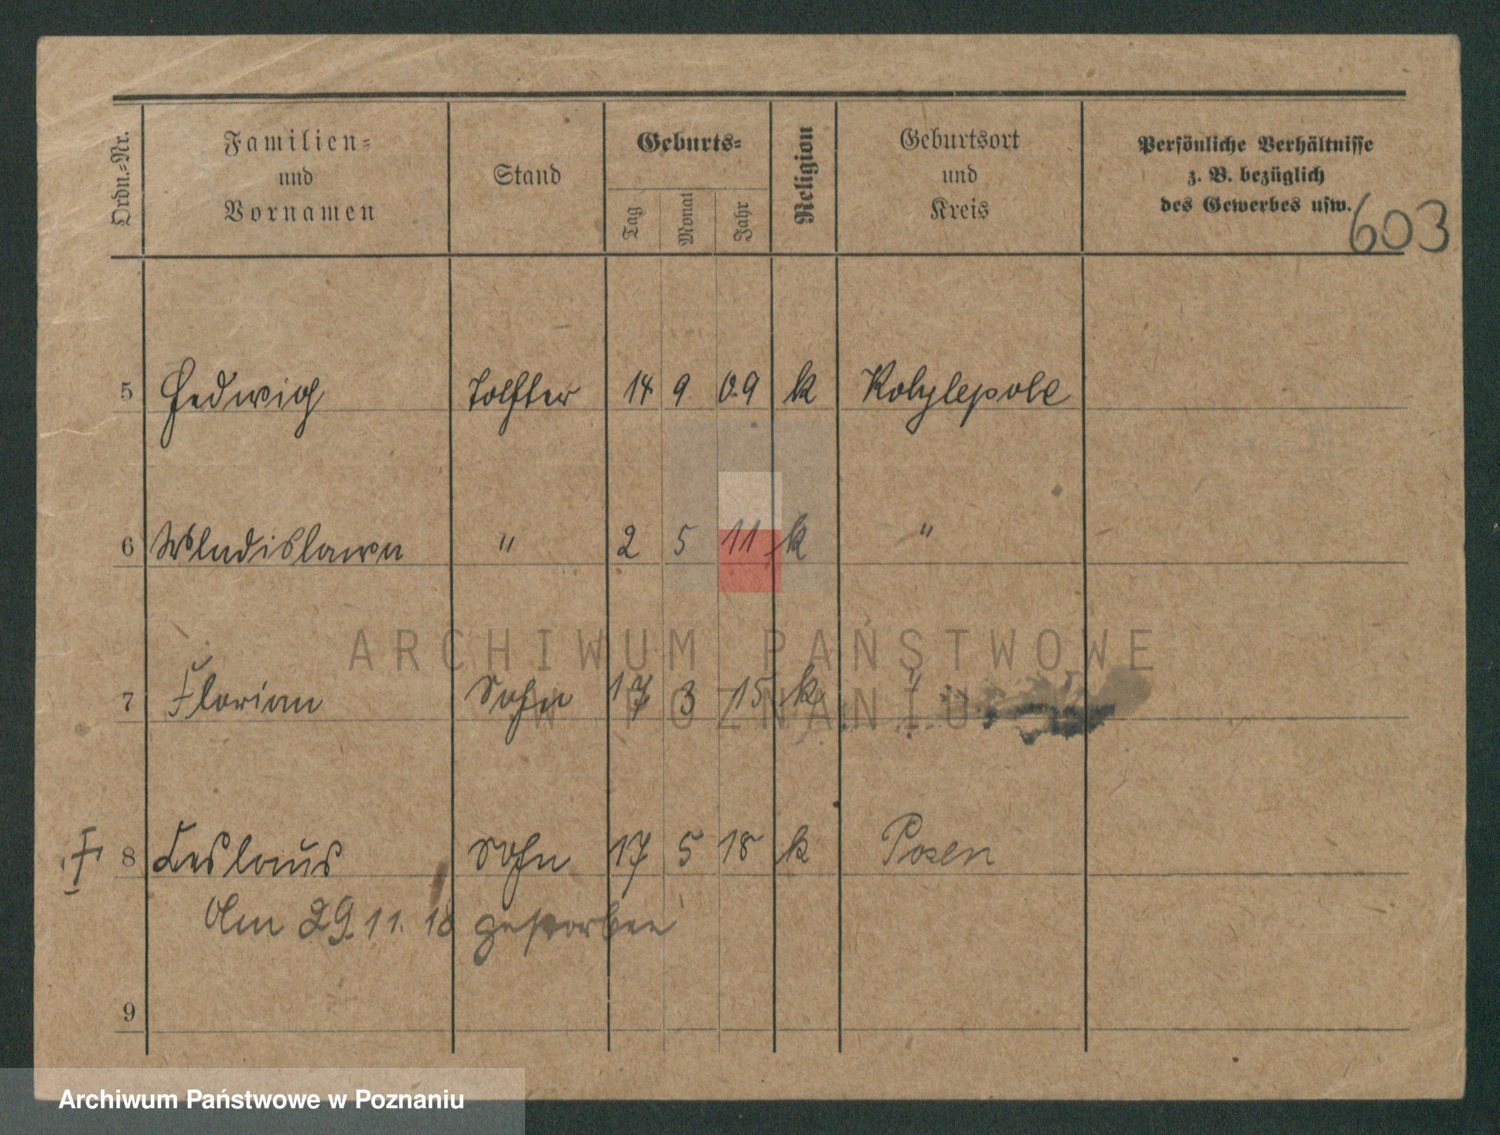 Ordn.-Nr.
Familien-
und
Vornamen
Stand
Geburts-
Tag
Monat
Jahr
Religion
Geburtsort
und
Kreis
Persönliche Verhältnisse
z. B. bezüglich
des Gewerbes usw.
603
5 Hedwig Tochter 14 9 09 k Kobylepole
6 Wladislawa " 2 5 11 k "
ARCHIWUM PAŃSTWOWE
W POZNANIU
7 Florian Sohn 17 3 15 k "
8 Ceslaus Sohn 17 5 18 k Posen
Am 29.11.18 gestorben
9
Archiwum Państwowe w Poznaniu